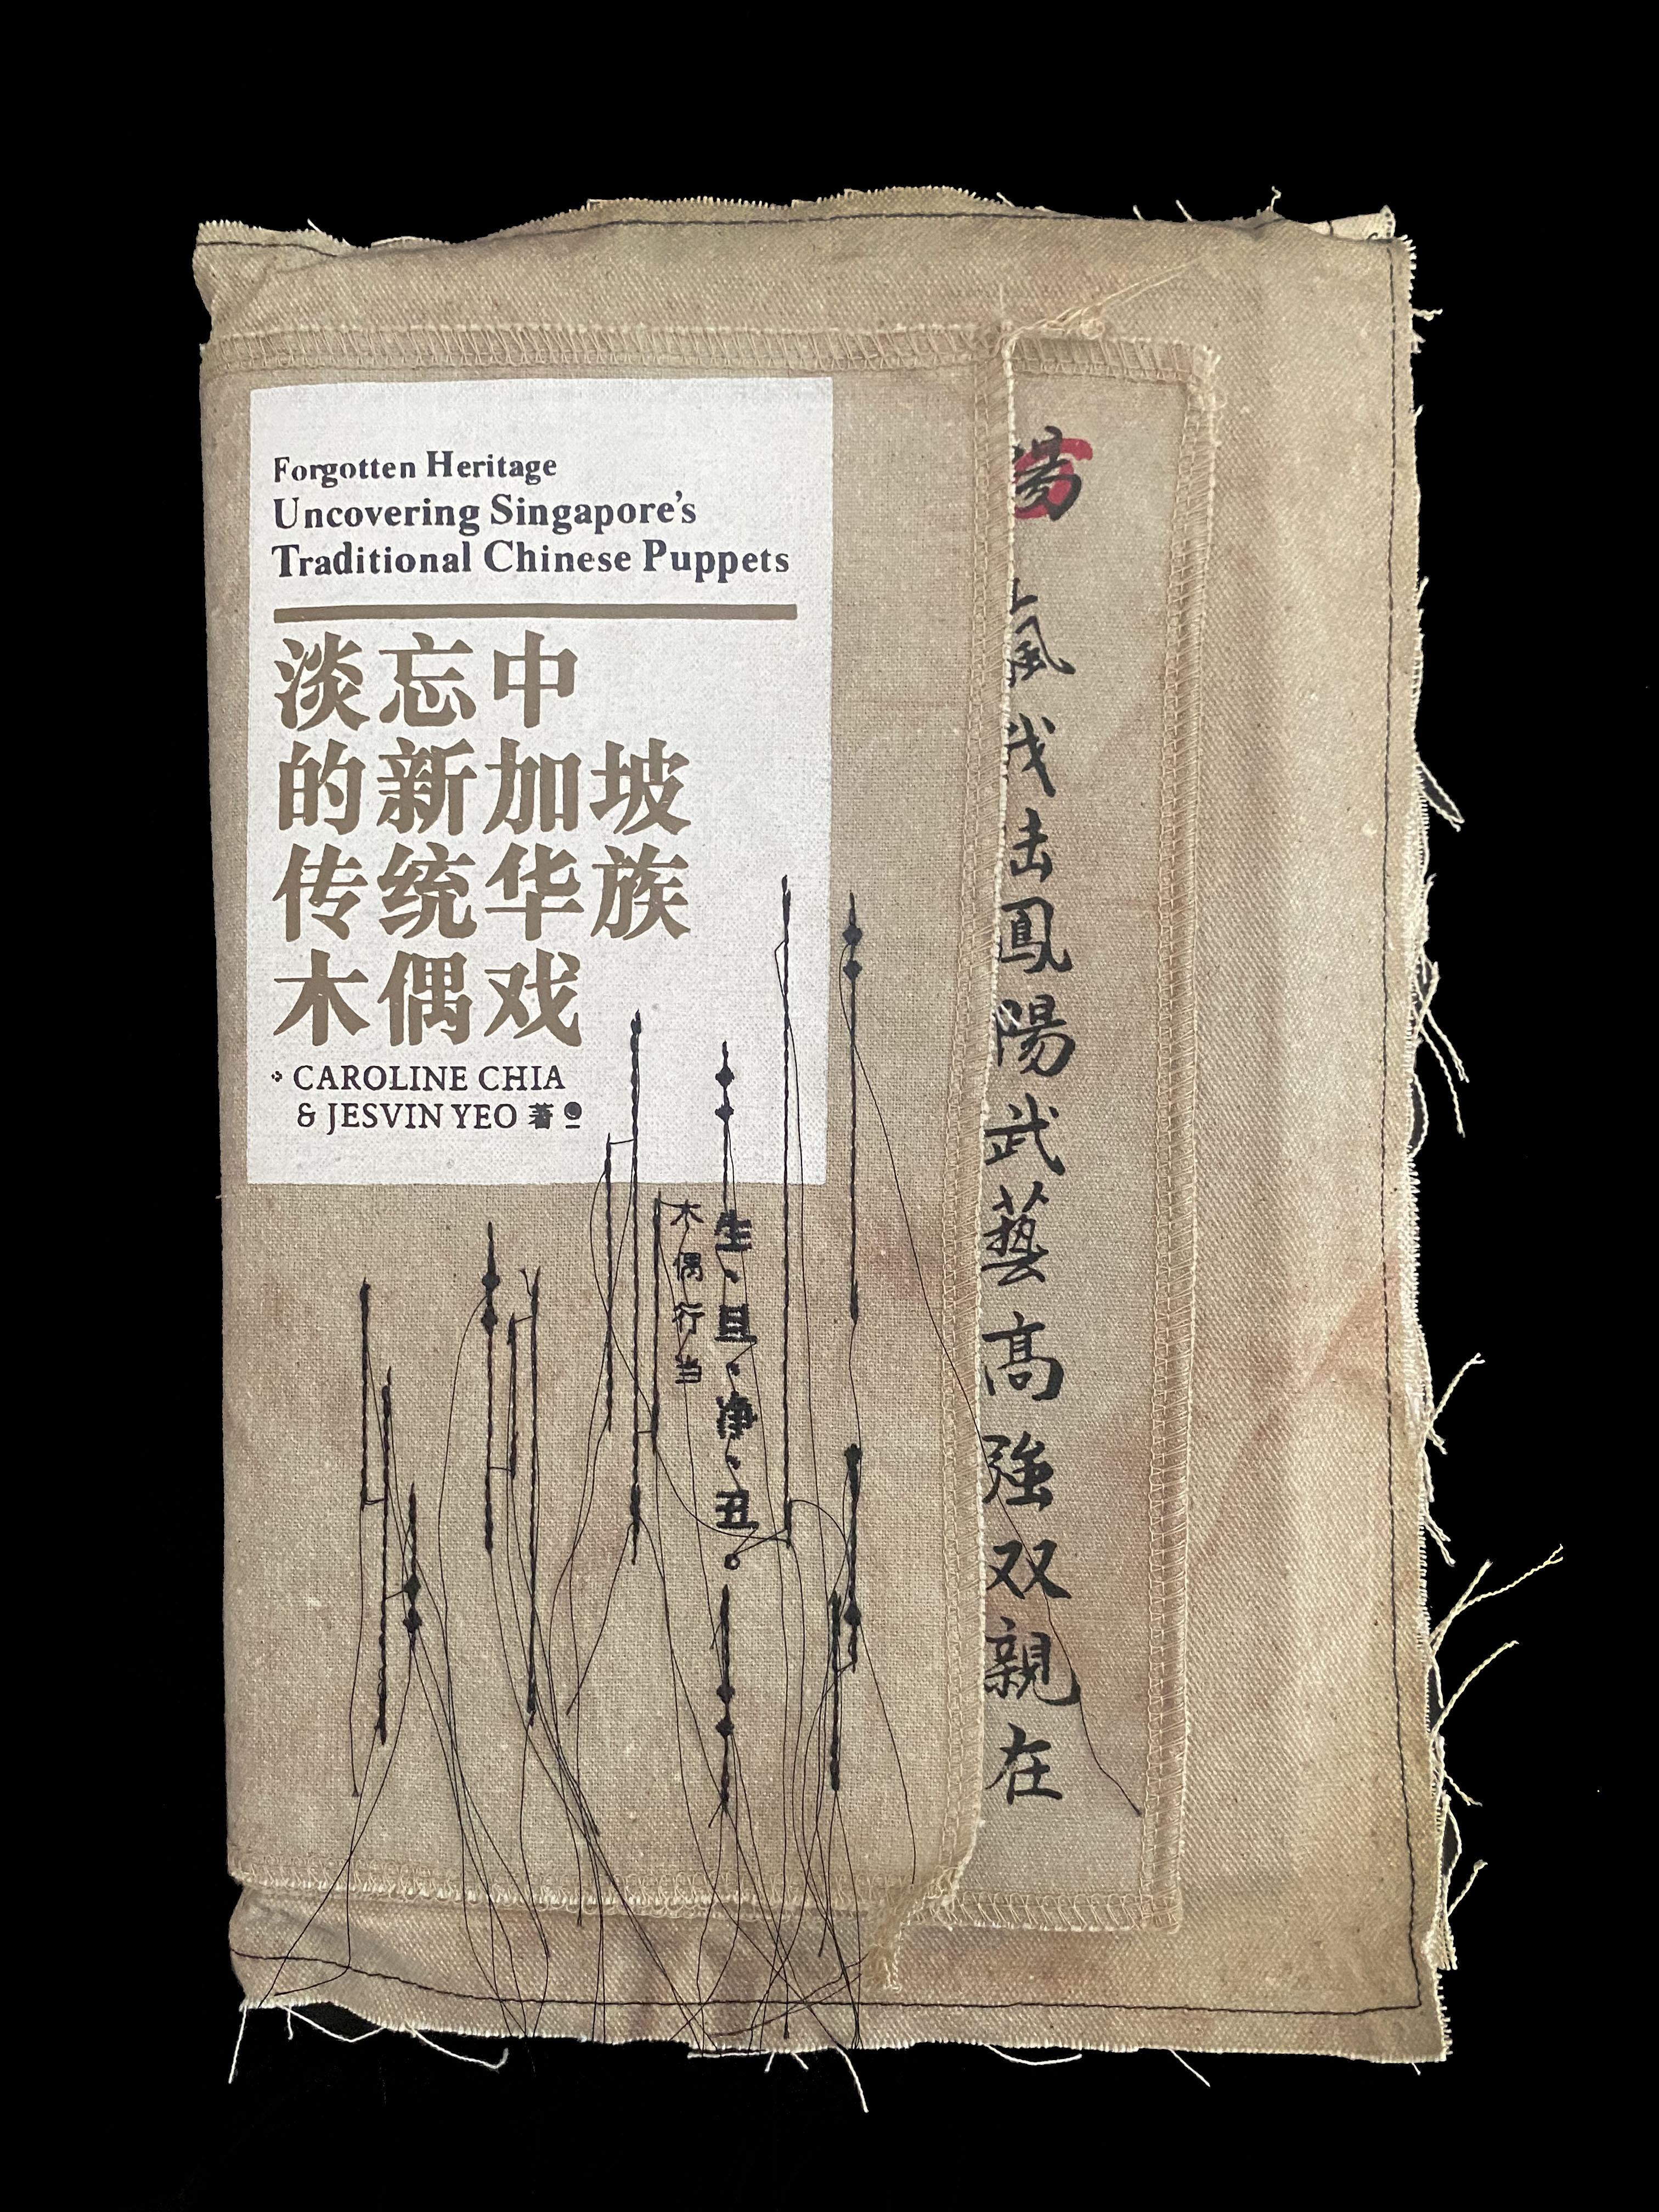 Forgotten Heritage
Uncovering Singapore's
Traditional Chinese Puppets
淡忘中
的新加坡
传统华族
木偶戏
CAROLINE CHIA
& JESVIN YEO 著
木偶行当
生、旦、净、丑。
鳳陽武藝高強双親在